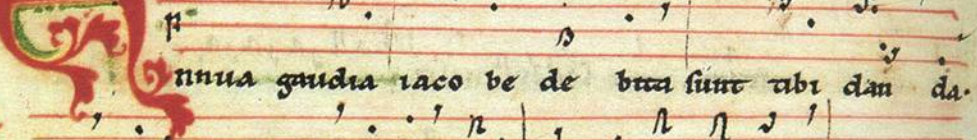 nnua gaudia iaco be de bita sunt tibi dan da.